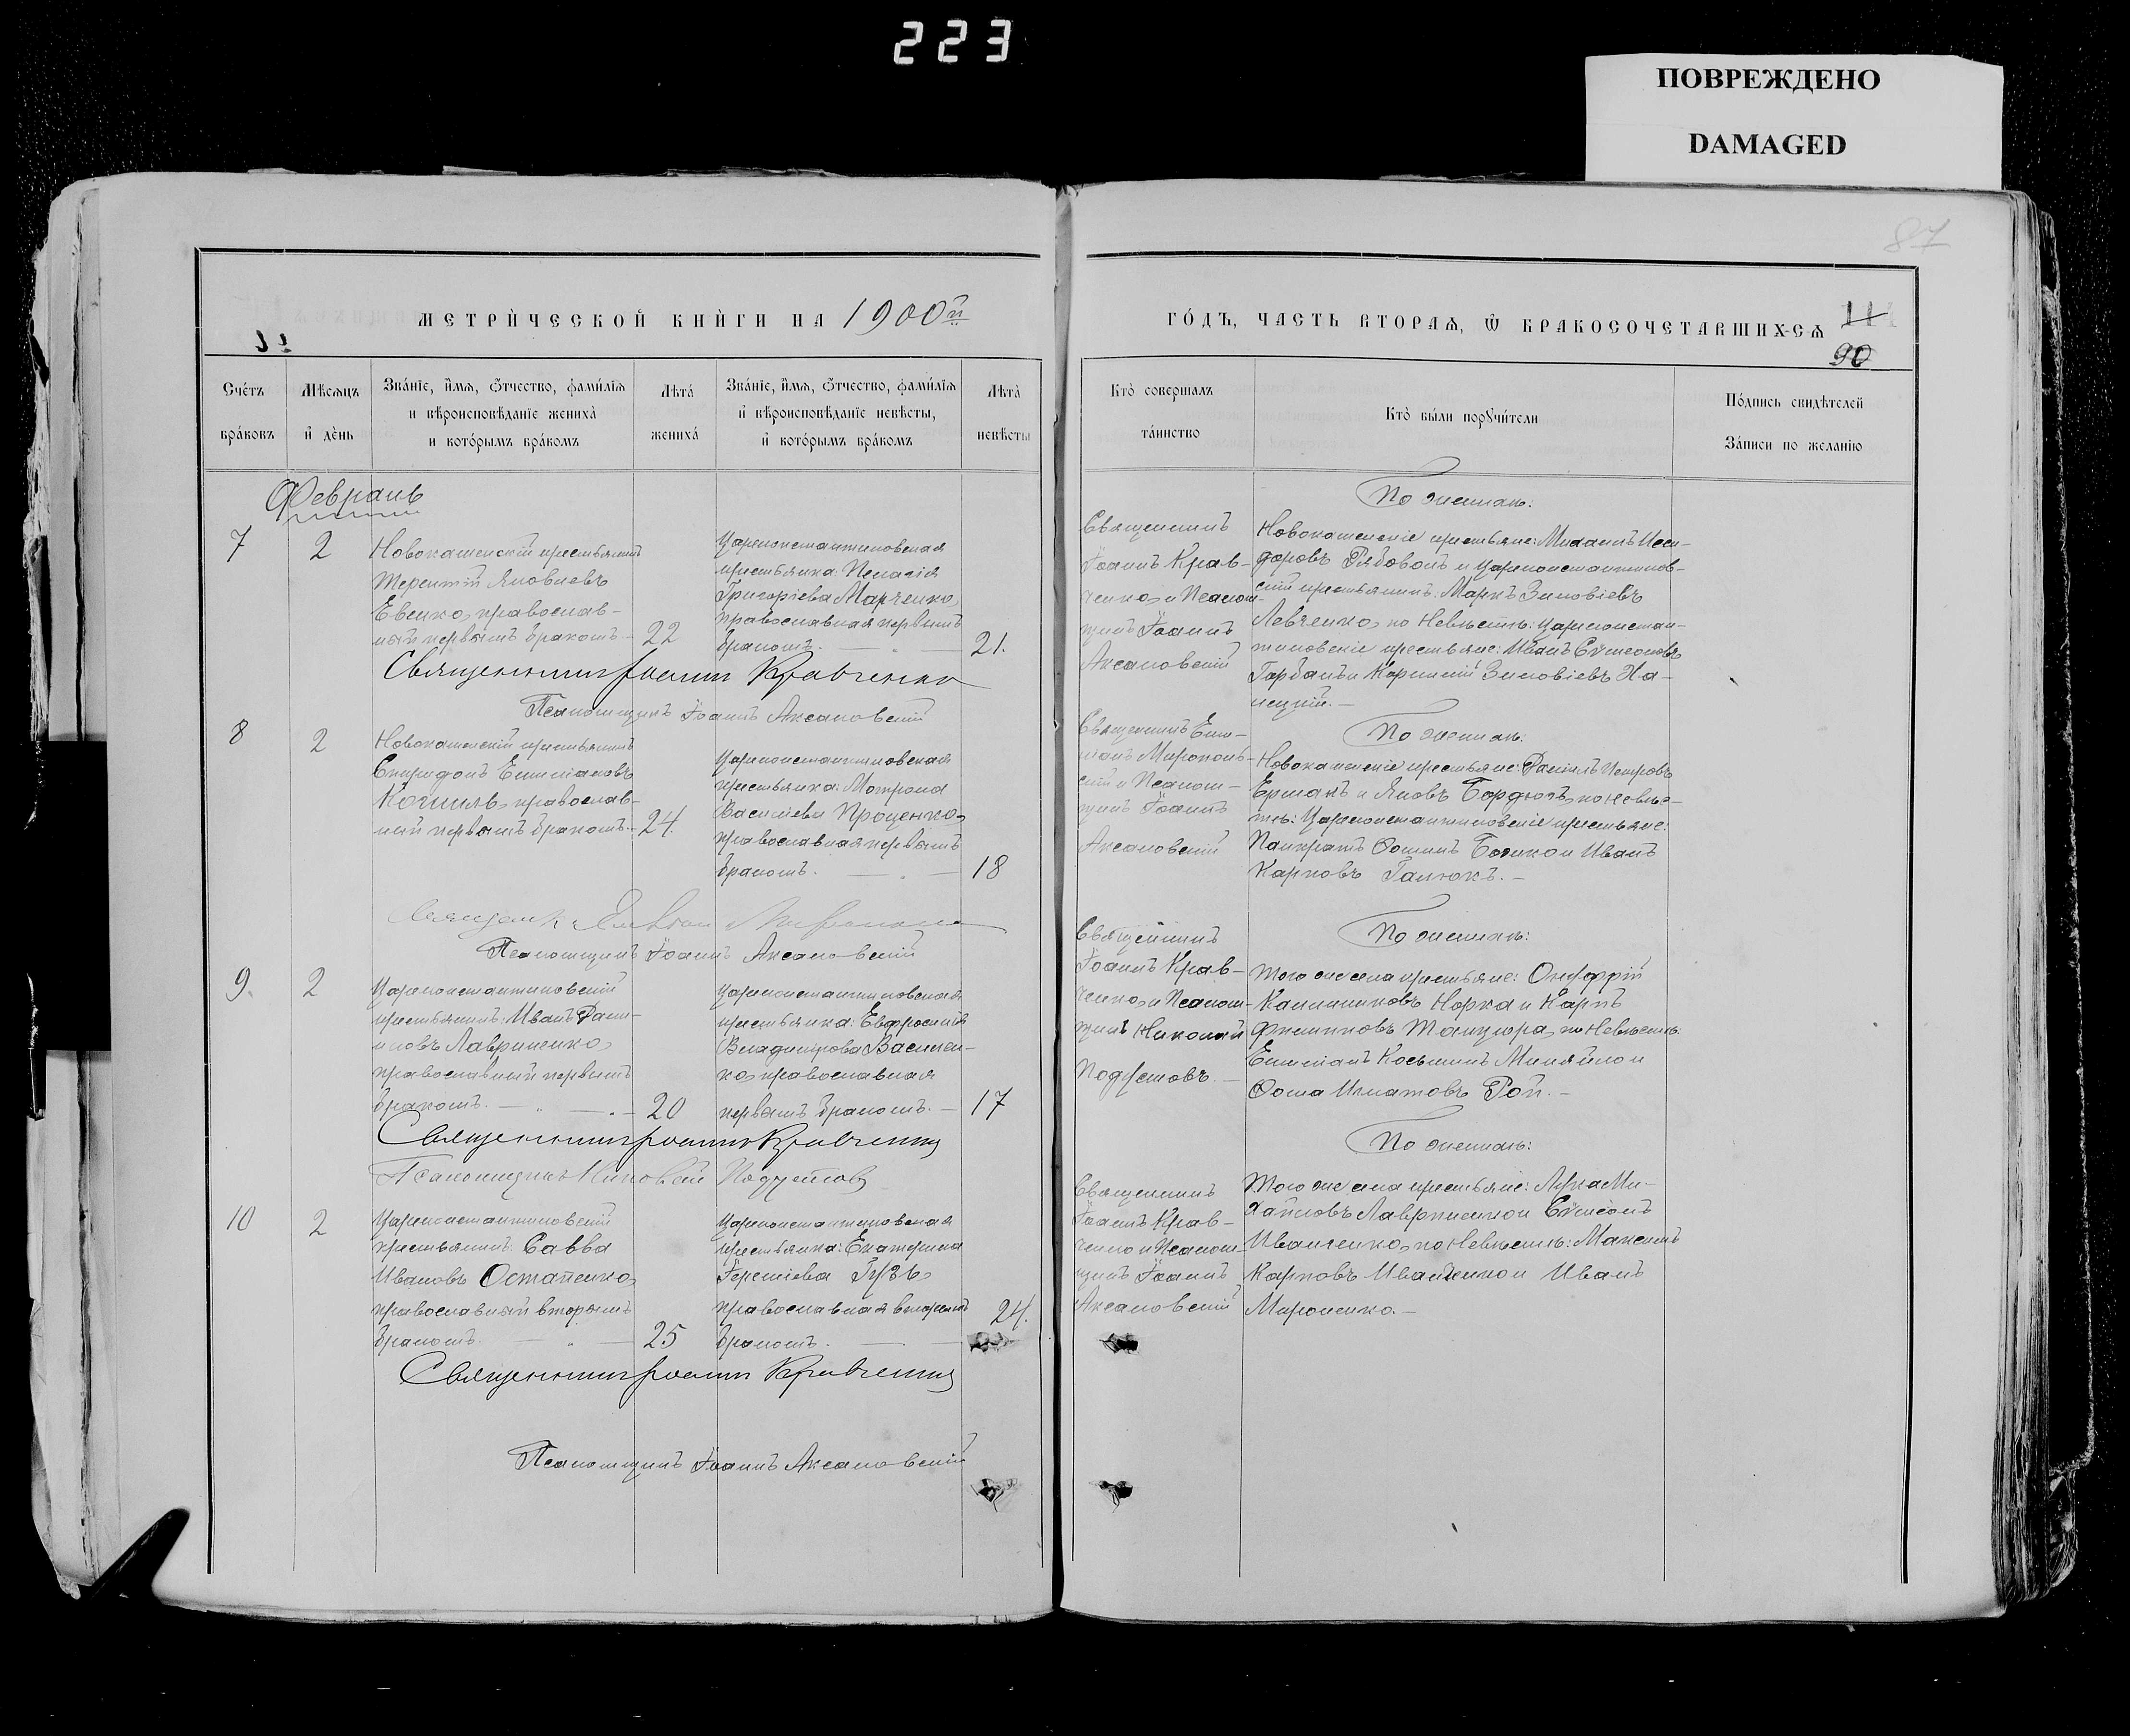 223
ПОВРЕЖДЕНО
DAMAGED
87
МЕТРИЧЕСКОЙ КНИГИ НА 1900й
ГОДЪ, ЧАСТЬ ВТОРАЯ, Ѿ БРАКОСОЧЕТАВШИХСЯ
11
90
Счетъ
браковъ
Мѣсяцъ
и день
Званіе, имя, отчество, фамилія
и вѣроисповѣданіе жениха
и которымъ бракомъ
Лѣта
жениха
Званіе, имя, отчество, фамилія
и вѣроисповѣданіе невѣсты,
и которымъ бракомъ
Лѣта
невѣсты
Кто совершалъ
таинство
Кто были поручители
Подпись свидѣтелей
записи по желанію
Февраль
7
2
Новокаменскій крестьянинъ
Терентій Яковлевъ
Евенко, православ-
ный первымъ бракомъ
22
Цареконстантиновская
крестьянка: Пелагія
Григоріева Марченко,
православная первымъ
бракомъ.
21.
Священникъ
Іоаннъ Крав-
ченко, и Псалом-
щикъ Іоаннъ
Аксановскій
По женихѣ:
Новокаменскіе крестьяне: Михаилъ Иси-
доровъ Рябоволъ и Цареконстантинов-
скій крестьянинъ: Маркъ Зиновіевъ
Левченко, по невѣстѣ: Цареконстан-
тиновскіе крестьяне: Иванъ Сѵмеоновъ
Горбань и Корнилій Зиновіевъ Ха-
лецкій.
Священникъ Іоаннъ Кравченко
Псаломщикъ Іоаннъ Аксановскій
8
2
Новокаменскій крестьянинъ
Спиридонъ Емиліановъ
православ-
ный первымъ бракомъ.
24.
Цареконстантиновская
крестьянка: Мотрона
Василіева Проценко,
православная первымъ
бракомъ.
18
Священникъ Еми-
ліанъ
и Псалом-
щикъ Іоаннъ
Аксановскій
По женихѣ:
Новокаменскіе крестьяне: Даніилъ Петровъ
Ермакъ и Яковъ Бордюгъ, по невѣс-
тѣ: Цареконстантиновскіе крестьяне:
Панкратъ Ѳоминъ и Иванъ
Карповъ Галюкъ.
Псаломщикъ Іоаннъ Аксановскій
9.
2
Цареконстантиновскій
крестьянинъ: Иванъ Дани-
иловъ Лавриненко,
православный первымъ
бракомъ.
20
Цареконстантиновская
крестьянка: Евфросинія
Владимірова Василен-
ко, православная
первымъ бракомъ.
17
Священникъ
Іоаннъ Крав-
ченко, и Псалом-
щикъ Николай
По женихѣ:
Того же села крестьяне: Онуфрій
Калинниковъ Норка и Карпъ
Филипповъ Танцюра, по невѣстѣ:
Емиліанъ Косьминъ Миняйло и
Ѳома Игнатовъ Рой.
Священникъ Іоаннъ Кравченко
Псаломщикъ Николай
10
2
Цареконстантиновскій
крестьянинъ: Савва
Ивановъ Остапенко,
православный вторымъ
бракомъ.
25
Цареконстантиновская
крестьянка: Екатерина
Іереміева Гузь,
православная вторымъ
бракомъ.
24.
Священникъ
Іоаннъ Крав-
ченко и Псалом-
щикъ Іоаннъ
Аксановскій
По женихѣ:
Того же села крестьяне: Лука Ми-
хайловъ Лавриненко и Сѵмеонъ
Иванченко, по невѣстѣ: Максимъ
Карповъ Иванченко и Иванъ
Мироненко.
Священникъ Іоаннъ Кравченко
Псаломщикъ Іоаннъ Аксановскій